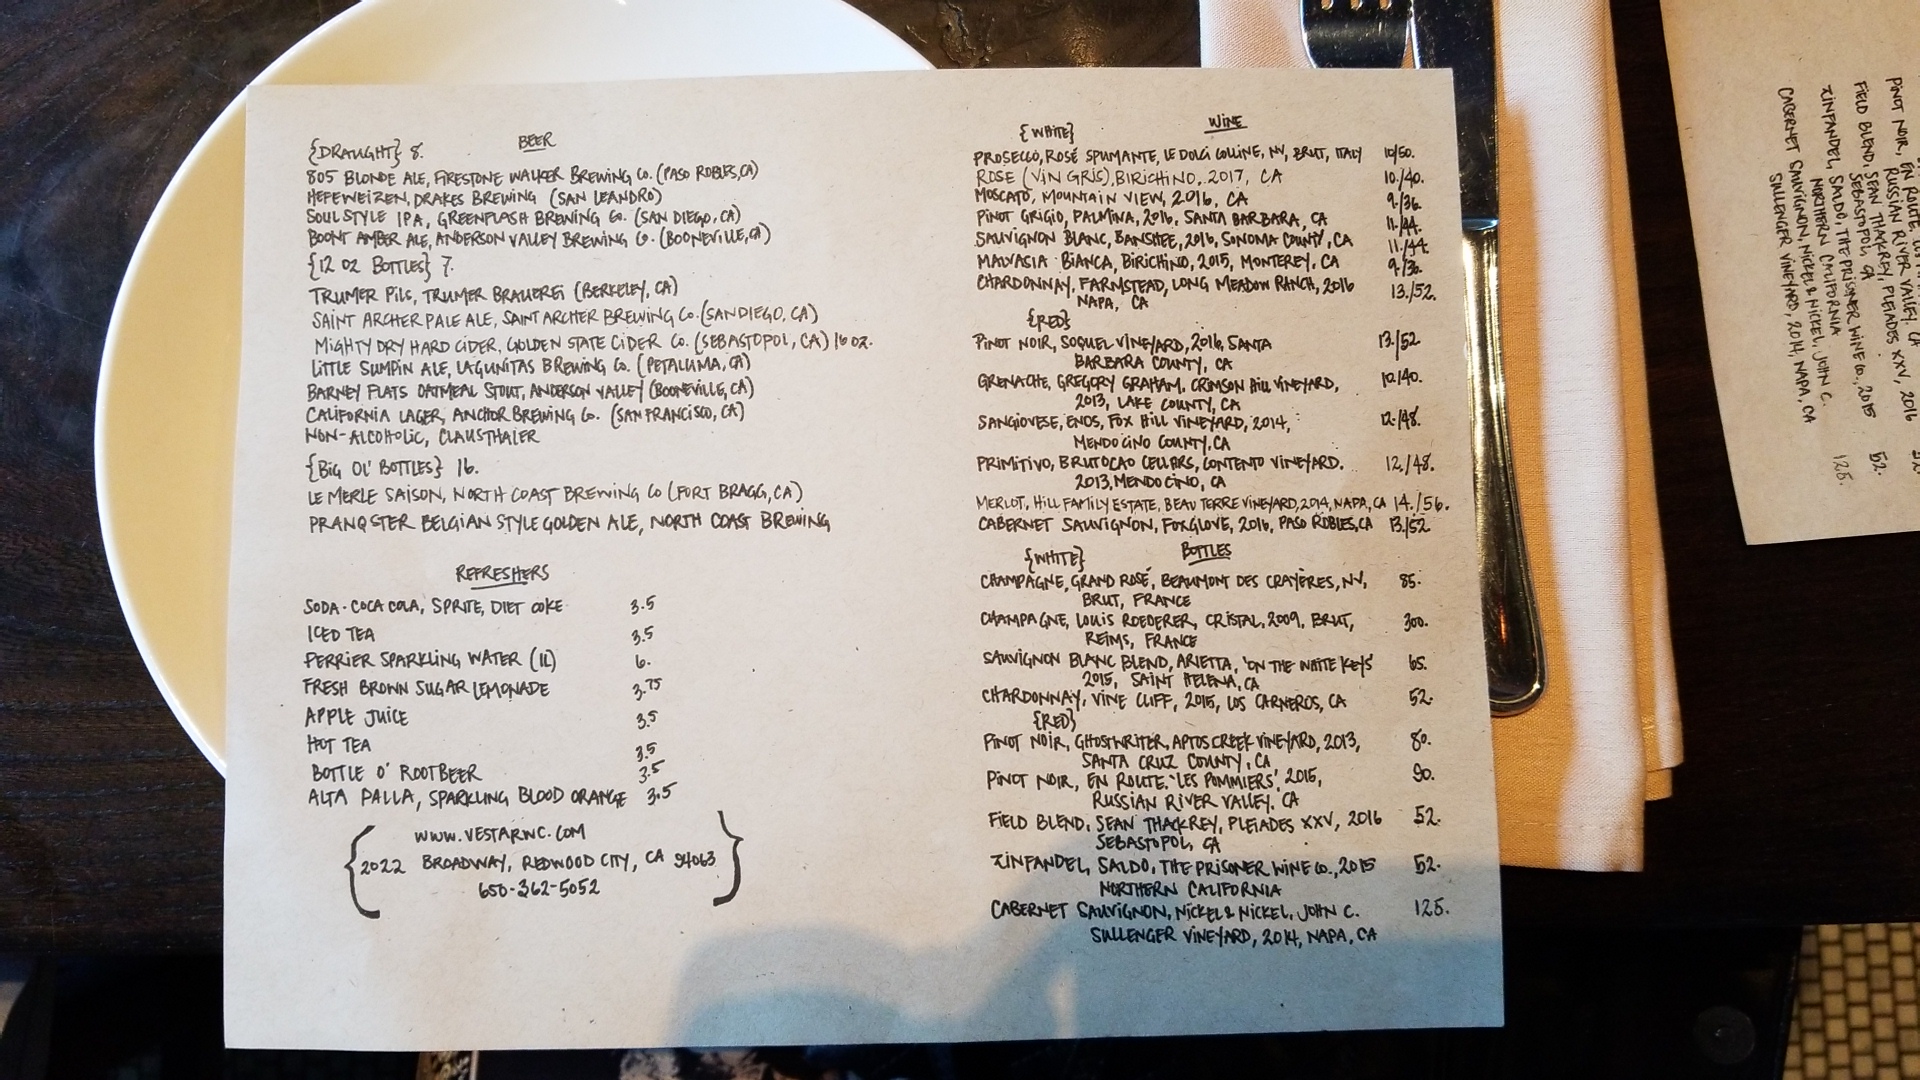 BEER
{DRAUGHT} 8.
805 BLONDE ALE, FIRESTONE WALKER BREWING CO. (PASO ROBLES, CA)
HEFEWEIZEN, DRAKES BREWING (SAN LEANDRO)
SOUL STYLE IPA, GREENFLASH BREWING CO. (SAN DIEGO, CA)
BOONT AMBER ALE, ANDERSON VALLEY BREWING CO. (BOONEVILLE, CA)
{12 OZ BOTTLES} 7.
TRUMER PILS, TRUMER BRAUEREI (BERKELEY, CA)
SAINT ARCHER PALE ALE, SAINT ARCHER BREWING CO. (SAN DIEGO, CA)
MIGHTY DRY HARD CIDER, GOLDEN STATE CIDER CO. (SEBASTOPOL, CA) 16 OZ.
LITTLE SUMPIN ALE, LAGUNITAS BREWING CO. (PETALUMA, CA)
BARNEY FLATS OATMEAL STOUT, ANDERSON VALLEY (BOONEVILLE, CA)
CALIFORNIA LAGER, ANCHOR BREWING CO. (SAN FRANCISCO, CA)
NON-ALCOHOLIC, CLAUSTHALER
{BIG OL' BOTTLES} 16.
LE MERLE SAISON, NORTH COAST BREWING CO (FORT BRAGG, CA)
PRANQSTER BELGIAN STYLE GOLDEN ALE, NORTH COAST BREWING
REFRESHERS
SODA - COCA COLA, SPRITE, DIET COKE 3.5
ICED TEA 3.5
PERRIER SPARKLING WATER (1L) 6.
FRESH BROWN SUGAR LEMONADE 3.75
APPLE JUICE 3.5
HOT TEA 3.5
BOTTLE O' ROOTBEER 3.5
ALTA PALLA, SPARKLING BLOOD ORANGE 3.5
WWW.VESTARWC.COM
2022 BROADWAY, REDWOOD CITY, CA 94063
650-362-5052
WINE
{WHITE}
PROSECCO, ROSÉ SPUMANTE, LE DOLCI COLLINE, NV, BRUT, ITALY 10/50.
ROSE (VIN GRIS), BIRICHINO, 2017, CA 10./40.
MOSCATO, MOUNTAIN VIEW, 2016, CA 9./36.
PINOT GRIGIO, PALMINA, 2016, SANTA BARBARA, CA 11./44.
SAUVIGNON BLANC, BANSHEE, 2016, SONOMA COUNTY, CA 11./44.
MALVASIA BIANCA, BIRICHINO, 2015, MONTEREY, CA 9./36.
CHARDONNAY, FARMSTEAD, LONG MEADOW RANCH, 2016 13./52.
NAPA, CA
{RED}
PINOT NOIR, SOQUEL VINEYARD, 2016, SANTA 13./52
BARBARA COUNTY, CA
GRENACHE, GREGORY GRAHAM, CRIMSON HILL VINEYARD, 10/40.
2013, LAKE COUNTY, CA
SANGIOVESE, ENOS, FOX HILL VINEYARD, 2014, 12./48.
MENDOCINO COUNTY, CA
PRIMITIVO, BRUTOCAO CELLARS, CONTENTO VINEYARD. 12./48.
2013, MENDOCINO, CA
MERLOT, HILL FAMILY ESTATE, BEAU TERRE VINEYARD, 2014, NAPA, CA 14./56.
CABERNET SAUVIGNON, FOXGLOVE, 2016, PASO ROBLES, CA 13./52
BOTTLES
{WHITE}
CHAMPAGNE, GRAND ROSÉ, BEAUMONT DES CRAYÈRES, NV, 85.
BRUT, FRANCE
CHAMPAGNE, LOUIS ROEDERER, CRISTAL, 2009, BRUT, 300.
REIMS, FRANCE
SAUVIGNON BLANC BLEND, ARIETTA, 'ON THE WHITE KEYS' 65.
2015, SAINT HELENA, CA
CHARDONNAY, VINE CLIFF, 2015, LOS CARNEROS, CA 52.
{RED}
PINOT NOIR, GHOSTWRITER, APTOS CREEK VINEYARD, 2013, 80.
SANTA CRUZ COUNTY, CA
PINOT NOIR, EN ROUTE. 'LES POMMIERS', 2015, 90.
RUSSIAN RIVER VALLEY. CA
FIELD BLEND, SEAN THACKREY, PLEIADES XXV, 2016 52.
SEBASTOPOL, CA
ZINFANDEL, SALDO, THE PRISONER WINE CO., 2015 52.
NORTHERN CALIFORNIA
CABERNET SAUVIGNON, NICKEL & NICKEL, JOHN C. 125.
SULLENGER VINEYARD, 2014, NAPA, CA
PINOT NOIR, EN ROUTE,
RUSSIAN RIVER VALLEY. CA
FIELD BLEND, SEAN THACKREY, PLEIADES XXV, 2016 52.
SEBASTOPOL, CA
ZINFANDEL, SALDO, THE PRISONER WINE CO., 2015 52.
NORTHERN CALIFORNIA
CABERNET SAUVIGNON, NICKEL & NICKEL, JOHN C. 125.
SULLENGER VINEYARD, 2014, NAPA, CA